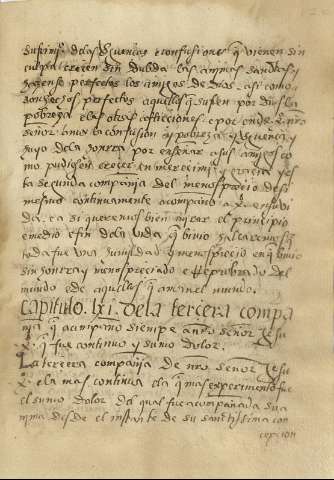 sufrimi° de las desuenças e confusiones q̃ vienen sin
culpa crecen sin dubda las animas sanctas y
hazense perfectos los amigos de dios asi como
son hechos perfectos aquellos q̃ sufren por dios la
pobreza e las otras afflicciones e por ende nr̃o
señor amo la confusion y pobreza y desuença y
huyo dela honrra por enseñar a sus amigos co
mo pudiesen crecer en merecimi° y gracia y es
ta segunda compañia del menosprecio de si
mesmo continuamente acompaño a xp̃o en su vi
da. ca si queremos bien mirar el principio
e medio e fin dela vida q̃ bivio hallaremos q̃
toda fue una humildad y menosprecio en q̃ bivio
sin honrra y menospreciado e reprobado del
mundo e de aquellos q̃ aman el mundo.
Capitulo. lxi. dela tercera compa
ñia q̃ acompaño siempre a nr̃o señor Jesu
x̃. q̃ fue continuo y sumo dolor.
La tercera compañia de nr̃o señor Jesu
x̃. e la mas continua e la q̃ mas experimento fue
el sumo dolor del qual fue acompañada su a
nima desde el instante de su sanctissima con
cepcion